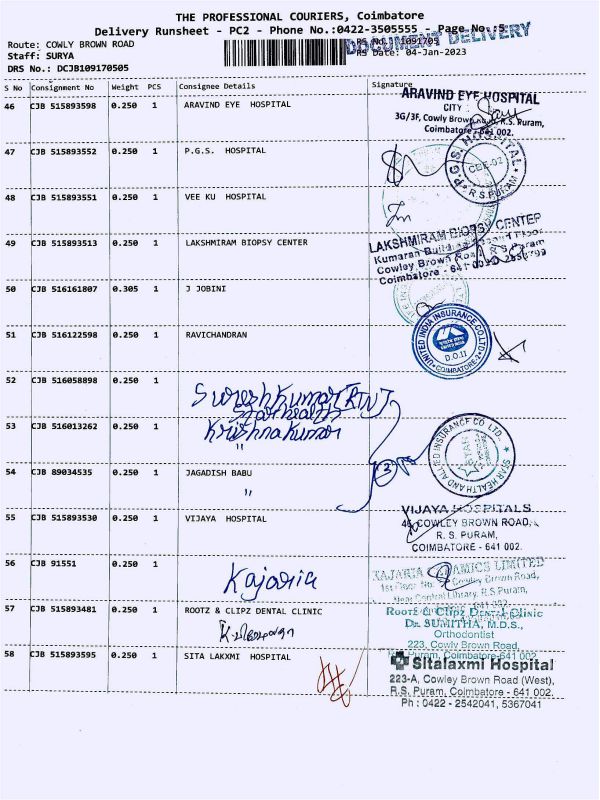 THE PROFESSIONAL COURIERS, Coimbatore
Delivery Runsheet - PC2 - Phone No.:0422-3505555 - Page No.:5
DOCUMENT DELIVERY
Route: COWLY BROWN ROAD
Staff: SURYA
DRS No.: DCJB109170505
RS No.: 1091705
RS Date: 04-Jan-2023
S No Consignment No Weight PCS Consignee Details Signature
46 CJB 515893598 0.250 1 ARAVIND EYE HOSPITAL
ARAVIND EYE HOSPITAL
CITY
3G/3F, Cowly Brown Road, R.S. Puram,
Coimbatore - 641 002.
47 CJB 515893552 0.250 1 P.G.S. HOSPITAL
P.G.S. HOSPITAL
CBE-02
R.S.PURAM
48 CJB 515893551 0.250 1 VEE KU HOSPITAL
49 CJB 515893513 0.250 1 LAKSHMIRAM BIOPSY CENTER
LAKSHMIRAM BIOPSY CENTER
Kumaran Building
Cowley Brown Road, R.S. Puram
Coimbatore - 641 002
50 CJB 516161807 0.305 1 J JOBINI
51 CJB 516122598 0.250 1 RAVICHANDRAN
UNITED INDIA INSURANCE CO.LTD.
D.O.II
COIMBATORE-2
52 CJB 516058898 0.250 1
Suresh Kumar
Star health
53 CJB 516013262 0.250 1
Krishna Kumar
"
54 CJB 89034535 0.250 1 JAGADISH BABU
"
3
STAR HEALTH AND ALLIED INSURANCE CO LTD.
55 CJB 515893530 0.250 1 VIJAYA HOSPITAL
VIJAYA HOSPITALS
46, COWLEY BROWN ROAD,
R. S. PURAM,
COIMBATORE - 641 002.
56 CJB 91551 0.250 1
Kajaria
KAJARIA CERAMICS LIMITED
1st Floor, No. Cowley Brown Road,
Near Central Library, R.S Puram,
641 002
57 CJB 515893481 0.250 1 ROOTZ & CLIPZ DENTAL CLINIC
Rootz & Clipz Dental Clinic
Dr. SUMITHA, M.D.S.,
Orthodontist
223, Cowly Brown Road,
R.S. Puram, Coimbatore-641 002
58 CJB 515893595 0.250 1 SITA LAKXMI HOSPITAL
Sitalaxmi Hospital
223-A, Cowley Brown Road (West),
R.S. Puram, Coimbatore - 641 002.
Ph : 0422 - 2542041, 5367041